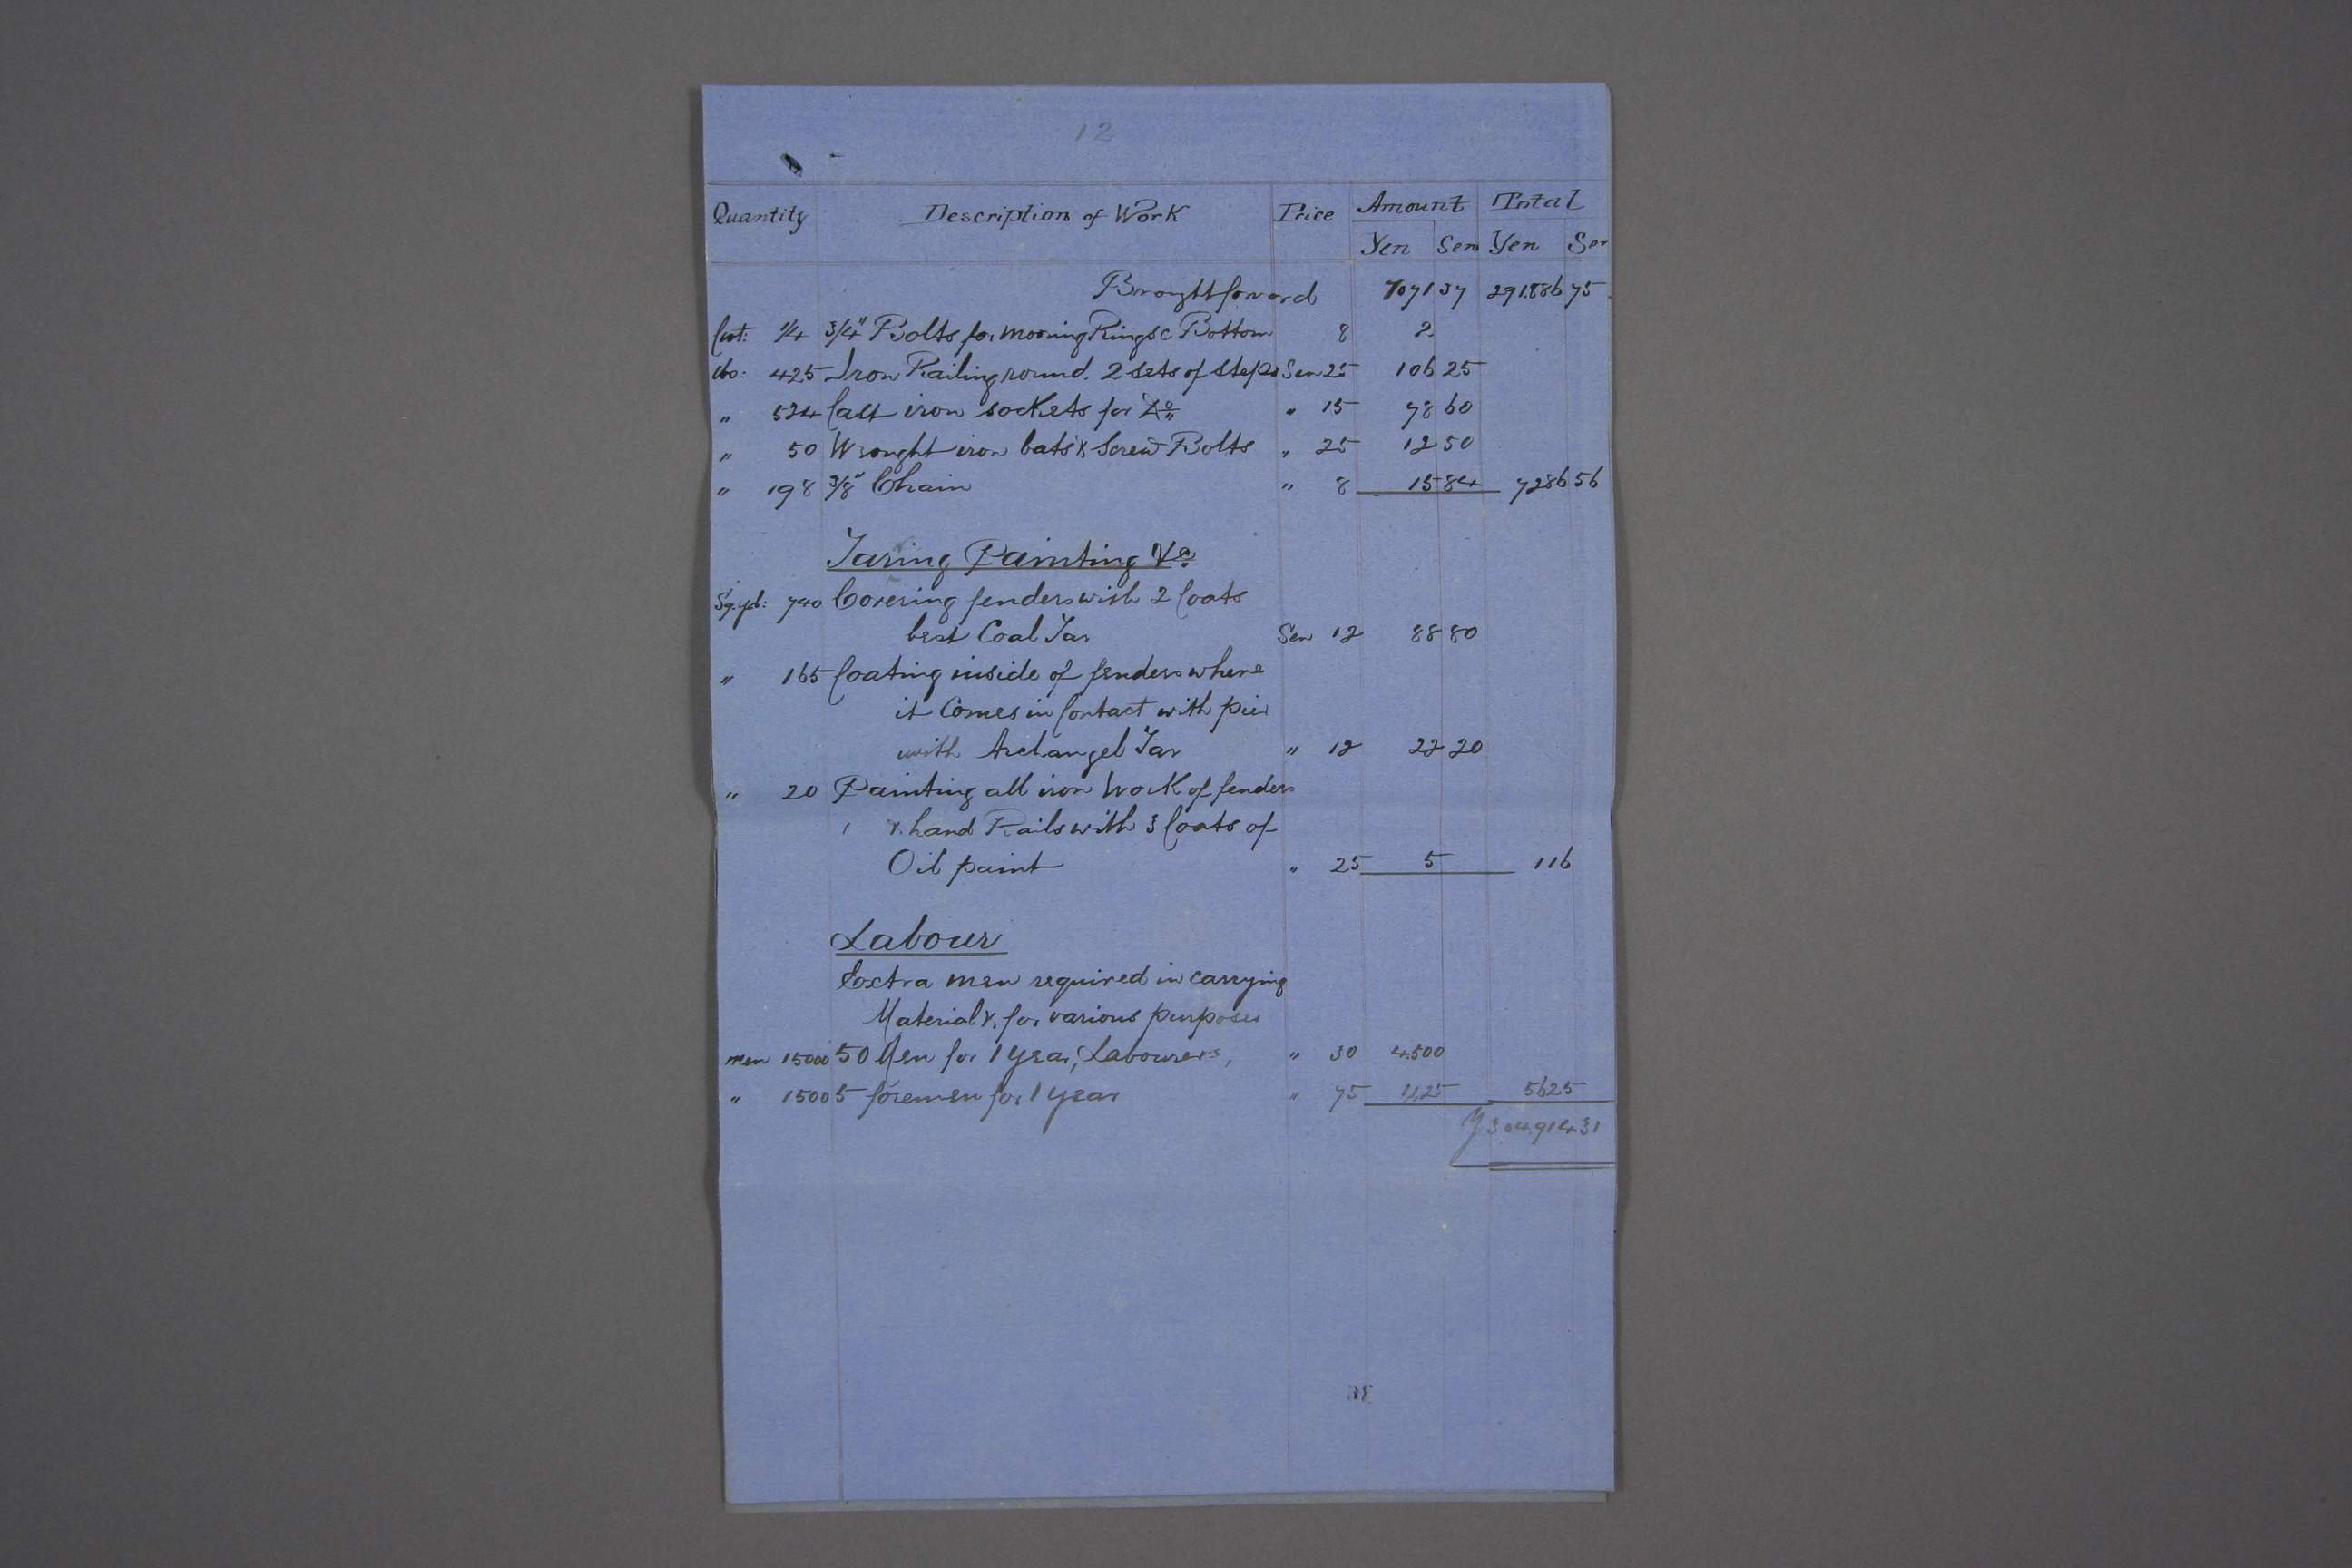 12
Quantity Description of Work Price Amount Total
Yen Sen Yen Sen
Brought forward 7071 37 291.886 75
Cwt: 1/4 3/4" Bolts for mooring Rings & Bottom 8 2
lbs: 425 Iron Railing round. 2 sets of steps Sen 25 106 25
" 524 Cast iron sockets for Do " 15 78 60
" 50 Wrought iron bats & Screw Bolts " 25 12 50
" 198 3/8" Chain " 8 15 84 7286 56
Taring Painting &c
Sq. yd: 740 Covering fenders with 2 Coats
best Coal Tar Sen 12 88 80
" 165 Coating inside of fenders where
it Comes in Contact with pier
with Archangel Tar " 12 22 20
" 20 Painting all iron Work of fenders
& hand Rails with 3 Coats of
Oil paint " 25 5 116
Labour
Extra men required in carrying
Material &. for various purposes
men 15000 50 Men for 1 Year, Labourers, " 30 4.500
" 1500 5 foremen for 1 year " 75 1,125 5625
Y 304.914 31